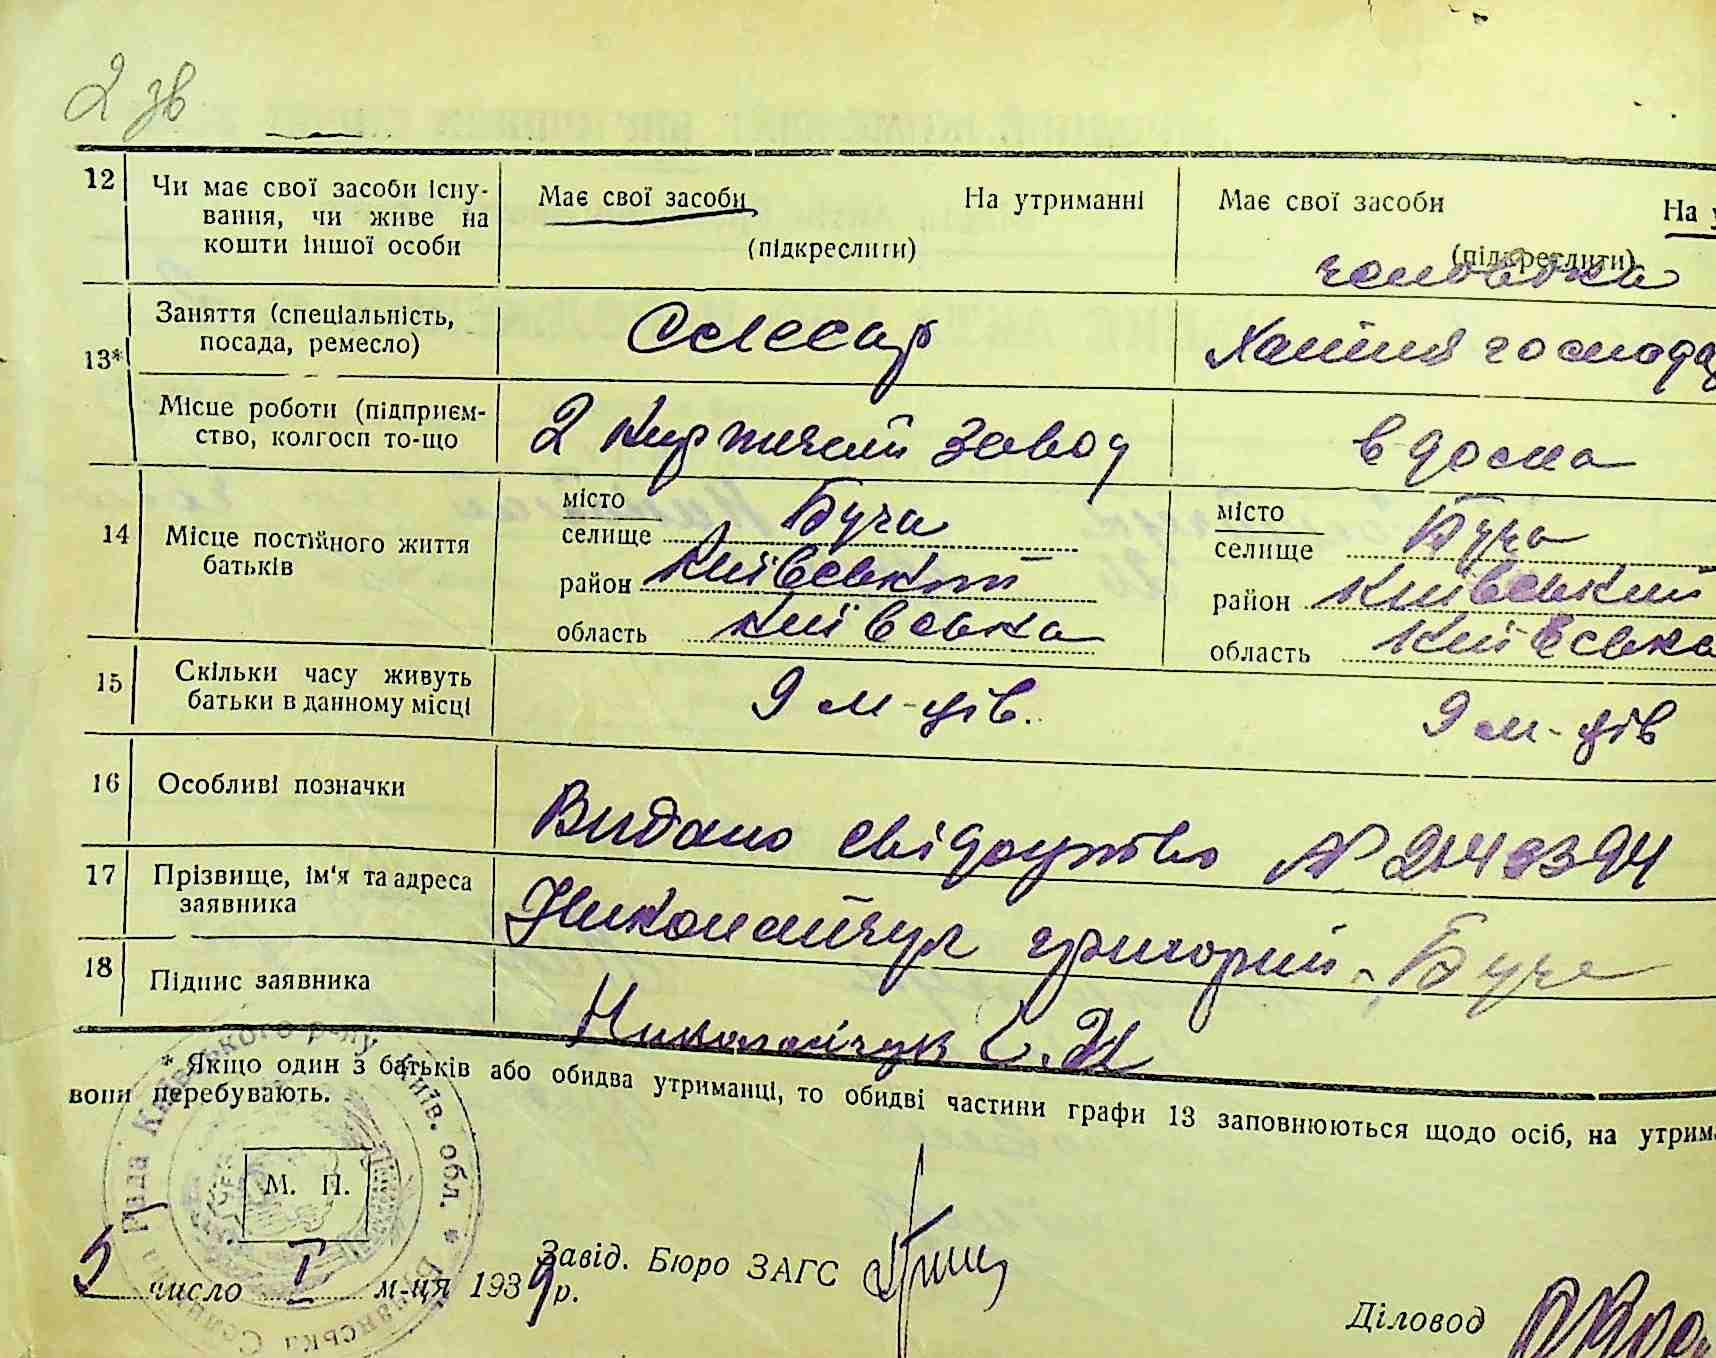 2 зв
12
Чи має свої засоби існу-
вання, чи живе на
кошти іншої особи
Має свої засоби На утриманні
(підкреслити)
Має свої засоби На у
(підкреслити)
чоловіка
13*
Заняття (спеціальність,
посада, ремесло)
Слесар
Хатня господар
Місце роботи (підприєм-
ство, колгосп то-що
2 Кирпичний завод
в дома
14
Місце постійного життя
батьків
місто
селище Буча
район Київський
область Київська
місто
селище Буча
район Київський
область Київська
15
Скільки часу живуть
батьки в данному місці
9 м-ців.
9 м-ців
16
Особливі позначки
Видано свідоцтво №
17
Прізвище, ім'я та адреса
заявника
Николайчук Григорий, Буча
18
Підпис заявника
Николайчук
* Якщо один з батьків або обидва утриманці, то обидві частини графи 13 заповнюються щодо осіб, на утрим
вони перебувають.
рада Київського р-ну Київ. обл. *
М. П.
5 число I м-ця 1939 р.
Завід. Бюро ЗАГС
Діловод